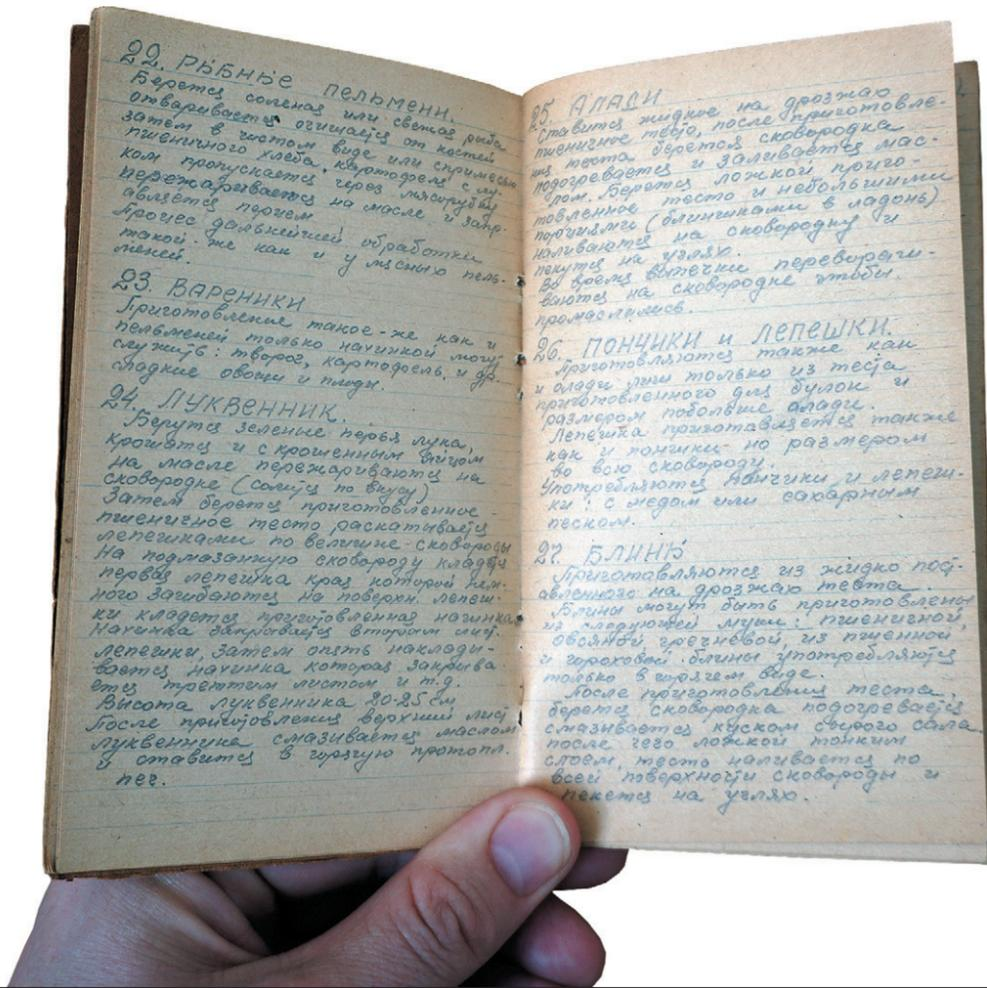 22. РЫБНЫЕ ПЕЛЬМЕНИ.
Берется соленая или свежая рыба
отваривается очищается от костей
затем в чистом виде или с примесью
пшеничного хлеба, картофеля с лу-
ком пропускается через мясорубку
пережаривается на масле и запр-
авляется перцем
Процес дальнейшей обработки
такой-же как и у мясных пель-
меней.
23. ВАРЕНИКИ
Приготовление такое-же как и
пельменей только начинкой могут
служить: творог, картофель, и др.
сладкие овощи и плоды.
24. ЛУКВЕННИК.
Берутся зеленые перья лука,
крошатся и с крошенным яйцом
на масле пережариваются на
сковородке (солится по вкусу)
Затем берется приготовленное
пшеничное тесто раскатывается
лепешками по величине сковороды
На подмазанную сковороду кладется
первая лепешка края которой нем-
ного загибаются на поверхн. лепеш-
ки кладется приготовленная начинка
Начинка закрывается вторым лист.
лепешки, затем опять наклады-
вается начинка которая закрыва
ется третьим листом и т.д.
Высота луквенника 20-25 см
После приготовления верхний лист
луквенника смазывается маслом
и ставится в горячую протопл.
печ.
25. АЛАДИ
Ставится жидкое на дрозжах
пшеничное тесто, после приготовле-
ния теста берется сковородка
подогревается и заливается мас-
лом. Берется ложкой приго-
товленное тесто и небольшими
порциями (блинчиками в ладонь)
наливаются на сковородку и
пекутся на углях.
Во время выпечки переворачи-
ваются на сковородке чтобы
промаслились.
26. ПОНЧИКИ И ЛЕПЕШКИ.
Приготовляются также как
и олади лиш только из теста
приготовленного для булок и
размером побольше алади.
Лепешка приготавляется также
как и пончики но размером
во всю сковороду.
Употребляются пончики и лепеш-
ки: с медом или сахарным
песком.
27. БЛИНЫ
Приготовляются из жидко пост
авленного на дрозжах теста.
Блины могут быть приготовлены
из следующей муки: пшеничной,
овсяной гречневой из пшенной
и гороховой. блины употребляются
только в горячем виде.
После приготовления теста,
берется сковородка подогревается
смазывается куском сырого сала
после чего ложкой тонким
слоем, тесто наливается по
всей поверхности сковороды и
пекется на углях.